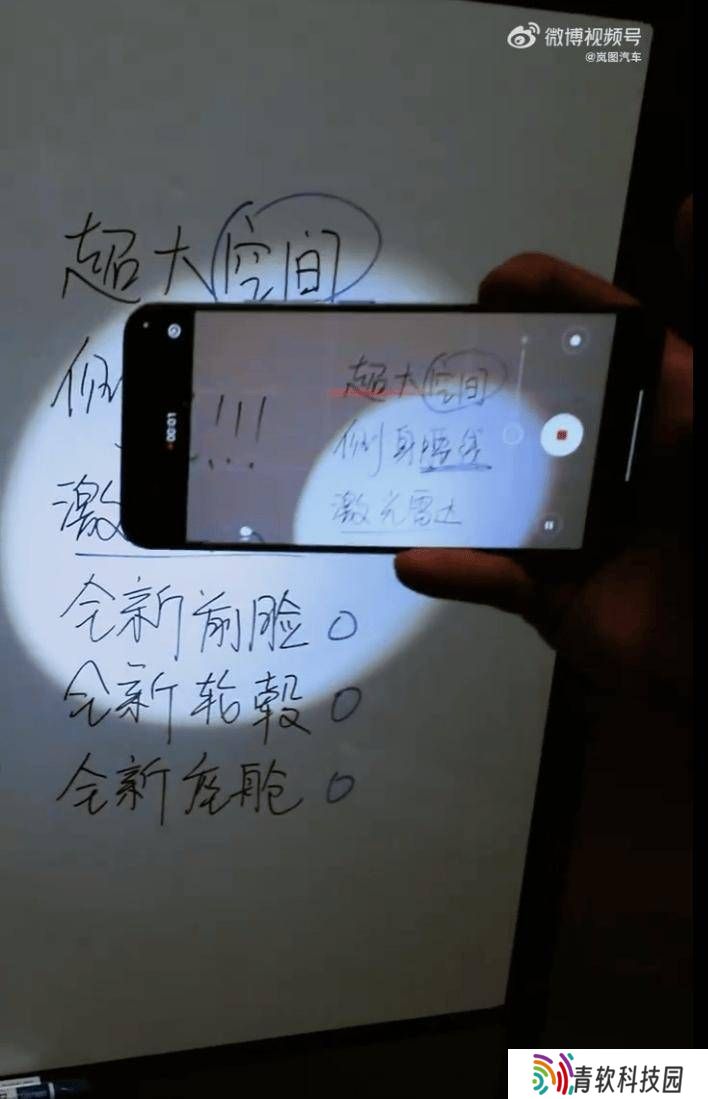 微博视频号
@岚图汽车
超大空间
侧
激
全新前脸0
全新轮毂0
全新座舱0
00:01
!!!
...
超大空间
侧身腰线
激光雷达
青软科技园